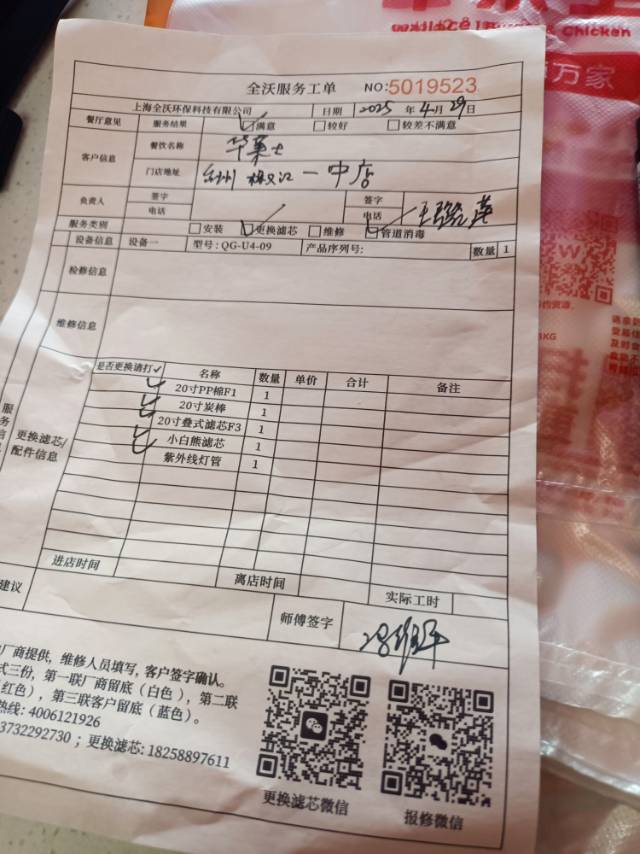 全沃服务工单 NO:5019523
上海全沃环保科技有限公司 日期 2025 年 4 月 29 日
餐厅意见 服务结果 满意 较好 较差不满意
客户信息 餐饮名称 华莱士
门店地址 台州 一中店
负责人 签字 签字
电话 电话 王
服务类别 安装 更换滤芯 维修 管道消毒
设备信息 设备一 型号: QG-U4-09 产品序列号: 数量 1
检修信息
维修信息
是否更换请打✓ 名称 数量 单价 合计 备注
20寸PP棉F1 1
20寸炭棒 1
20寸叠式滤芯F3 1
更换滤芯/配件信息 小白熊滤芯 1
紫外线灯管 1
进店时间 离店时间 实际工时
建议 师傅签字
厂商提供，维修人员填写，客户签字确认。
式三份，第一联厂商留底（白色），第二联
（红色），第三联客户留底（蓝色）。
热线: 4006121926
3732292730；更换滤芯: 18258897611
更换滤芯微信 报修微信
Chicken
万家